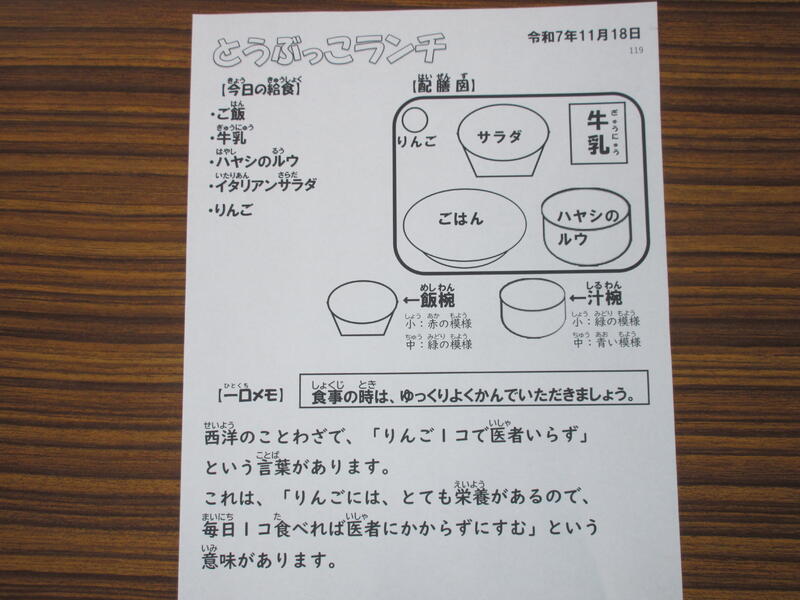 とうぶっこランチ
令和7年11月18日
119
【今日の給食】
・ご飯
・牛乳
・ハヤシのルウ
・イタリアンサラダ
・りんご
【配膳図】
りんご
サラダ
牛乳
ごはん
ハヤシの
ルウ
←飯椀
小：赤の模様
中：緑の模様
←汁椀
小：緑の模様
中：青い模様
【一口メモ】
食事の時は、ゆっくりよくかんでいただきましょう。
西洋のことわざで、「りんご1コで医者いらず」
という言葉があります。
これは、「りんごには、とても栄養があるので、
毎日1コ食べれば医者にかからずにすむ」という
意味があります。